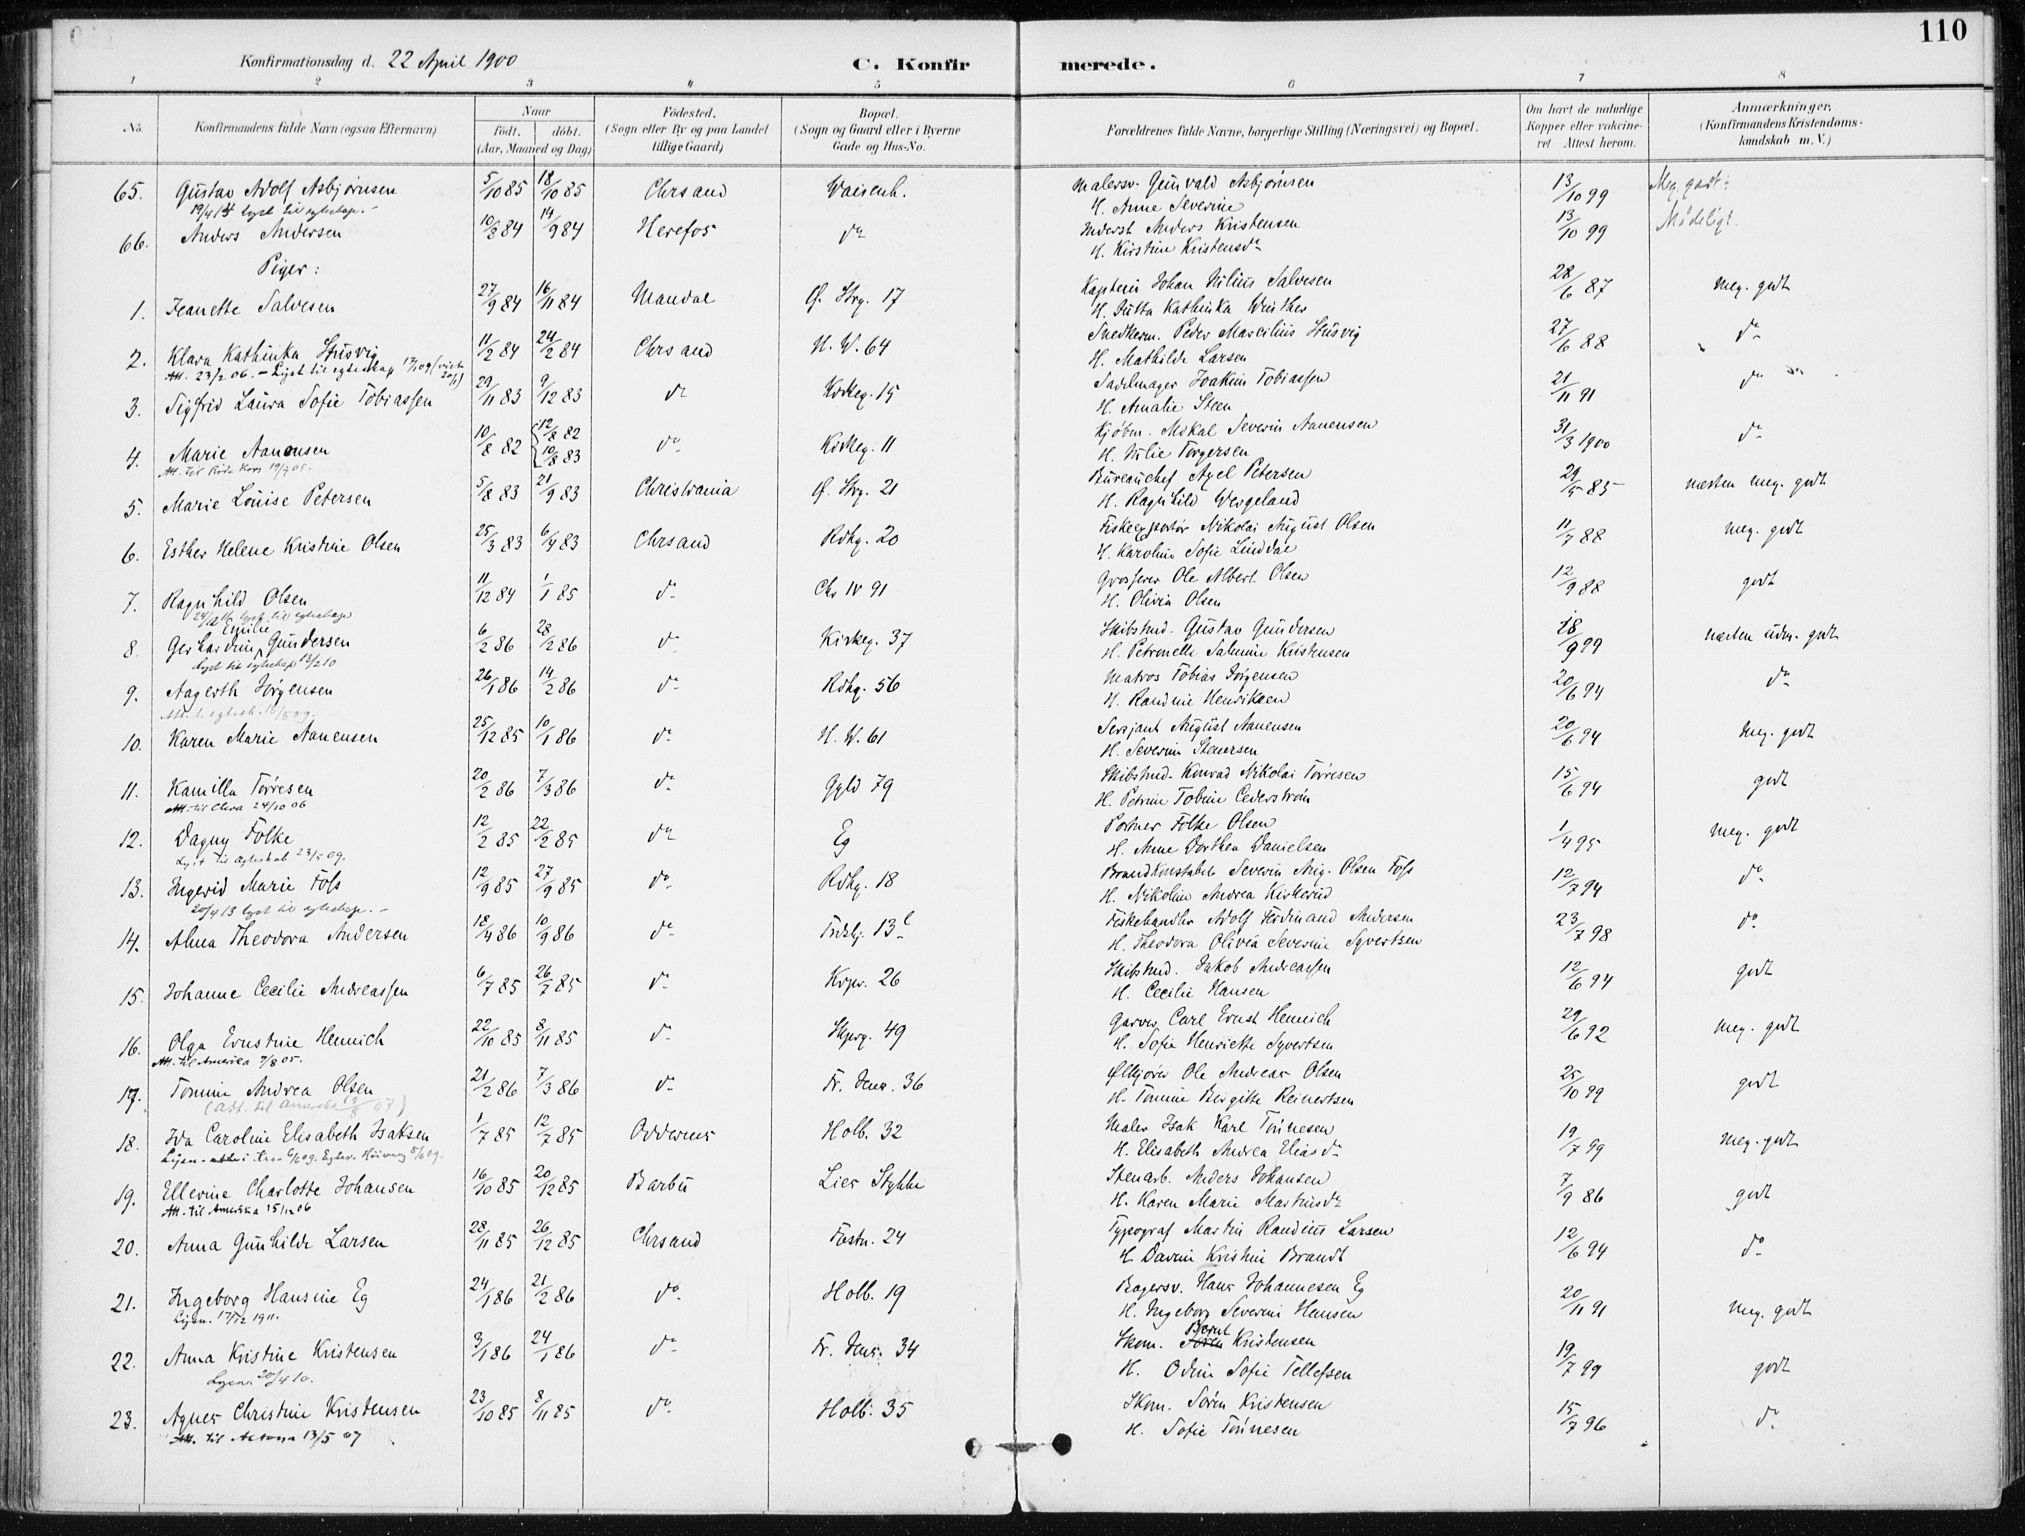 110
Konfirmationsdag d. 22 April 1900 C. Konfirmerede.
1 2 3 4 5 6 7 8
No. Konfirmandens fulde Navn (ogsaa Efternavn) Naar födt. döbt. (Aar, Maaned og Dag) Födested. (Sogn eller By og paa Landet tillige Gaard) Bopæl. (Sogn og Gaard eller i Byerne Gade og Hus-No. Forældrenes fulde Navne, borgerlige Stilling (Næringsvei) og Bopæl. Om havt de naturlige Kopper eller vakcineret. Attest herom. Anmærkninger. (Konfirmandens Kristendomskundskab m. V.)
65. Gustav Adolf Asbjørnsen 5/10 85 18/10 85 Chrsand Waisenh. Malersv. Gunvald Asbjørnsen 13/10 99 Meg. godt
19/4 lyst til egteskap. H. Anne Severine
66. Anders Andersen 10/8 84 14/9 84 Herefos do Inderst Anders Kristensen 13/10 99 Mådeligt.
H. Kirstine Kristensdr
Piger:
1. Jeanette Salvesen 27/9 84 16/11 84 Mandal Ø. Strg. 17 Kaptein Johan Nilius Salvesen 28/6 87 meg. godt
H. Jutta Kathinka Winther
2. Klara Kathinka Husvig 11/2 84 24/2 84 Chrsand H. W. 64 Snedkerm. Peder Marcilius Husvig 27/6 88 do
Att. 23/2 06. - Lyst til egteskap H. Mathilde Larsen
3. Sigfrid Laura Sofie Tobiassen 29/11 83 9/12 83 do Kirkeg. 15 Sadelmager Joakim Tobiassen 21/11 91 do
H. Amalie Steen
4. Marie Aanensen 10/8 82 12/8 82 10/8 83 do Kirkeg. 11 Kjøbm. Mikal Severin Aanensen 31/3 1900 do
Att. til Röde Kors 19/7 05. H. Julie Torgersen
5. Marie Louise Petersen 5/8 83 21/9 83 Christiania Ø. Strg. 21 Bureauchef Axel Petersen 29/5 85 næsten meg. godt
H. Ragnhild Wergeland
6. Esther Helene Kristine Olsen 25/3 83 6/4 83 Chrsand Rdhg. 20 Fiskeexportør Nikolai August Olsen 11/7 88 meg. godt
H. Karoline Sofie Linddal
7. Ragnhild Olsen 11/12 84 1/1 85 do Chr IV 91 Grosserer Ole Albert Olsen 12/9 88 godt
lyst til egteskap H. Olivia Olsen
8. Gerhardine Emilie Gundersen 6/2 86 28/2 86 do Kirkeg. 37 Skibstmd. Gustav Gundersen 18/9 99 næsten udm. godt
Lyst til egteskap 13/2 10 H. Petronelle Salmine Kristensen
9. Aagerth Jørgensen 26/1 86 14/2 86 do Rdhg. 56 Matros Tobias Jørgensen 20/6 94 do
Att. t. egtesk. 16/5 09. H. Randine Henriksen
10. Karen Marie Aanensen 25/12 85 10/1 86 do H. W. 61 Serjant August Aanensen 20/6 94 meg. godt
H. Severine Stenersen
11. Kamilla Tørresen 20/2 86 7/3 86 do Gyld 79 Skibstmd. Konrad Nikolai Tørresen 15/6 94 godt
Att. til Chra 24/10 06 H. Petrine Tobine Cederstrøm
12. Dagny Folke 12/2 85 22/2 85 do Eg Portner Folke Olsen 1/4 95 meg. godt
Lyst til egteskab 23/5 09. H. Anne Dorthea Danielsen
13. Ingerid Marie Foss 12/9 85 27/9 85 do Rdhg. 18 Brandkonstabel Severin Aug. Olsen Foss 12/7 94 do
20/4 13 lyst til egteskap. - H. Nikoline Andrea Kirkerud
14. Alma Theodora Andersen 18/4 86 10/9 86 do Tridsbj. 13 Fiskehandler Adolf Ferdinand Andersen 23/7 98 do
H. Theodora Olivia Severine Syvertsen
15. Johanne Cecilie Andreassen 6/7 85 26/7 85 do 26 Skibstmd. Jakob Andreassen 12/6 94 godt
H. Cecilie Hansen
16. Olga Ernstine Hennich 22/10 85 8/11 85 do 49 Garver Carl Ernst Hennich 29/6 92 meg. godt
Att. til Amerika 7/8 05. H. Sofie Henriette Syvertsen
17. Tomine Andrea Olsen 21/2 86 7/3 86 do Fr. 36 Ølkjører Ole Andreas Olsen 25/10 99 godt
(Att. til Amerika 07) H. Tomine Birgitte Reinertsen
18. Ida Caroline Elisabeth Isaksen 1/7 85 12/7 85 Oddernes Holb. 32 Maler Isak Karl Tønnesen 19/7 99 meg. godt
H. Elisabeth Andrea Eliasdr
19. Ellevine Charlotte Johansen 16/10 85 20/12 85 Barbu Lies Stykke Stenarb. Anders Johansen 7/9 86 godt
Att. til Amerika 15/12 06 H. Karen Marie Martinsdr
20. Anna Gunhilde Larsen 28/11 85 26/12 85 Chrsand Festn. 24 Typograf Martin Randius Larsen 12/6 94 do
H. Davine Kristine Brandt
21. Ingeborg Hansine Eg 24/1 86 21/2 86 do Holb. 19 Bagersv. Hans Johannesen Eg 20/11 91 meg. godt
Lysn. 17/12 1911. H. Ingeborg Severine Hansen
22. Anna Kristine Kristensen 3/1 86 24/1 86 do Fr. 34 Skom. Søren Bernt Kristensen 19/7 99 godt
Lysn. 20/4 10. H. Odine Sofie Tellefsen
23. Agnes Christine Kristensen 23/10 85 8/11 85 do Holb. 35 Skom. Søren Kristensen 15/7 96 do
Att. til Altona 13/5 07 H. Sofie Tønnesen